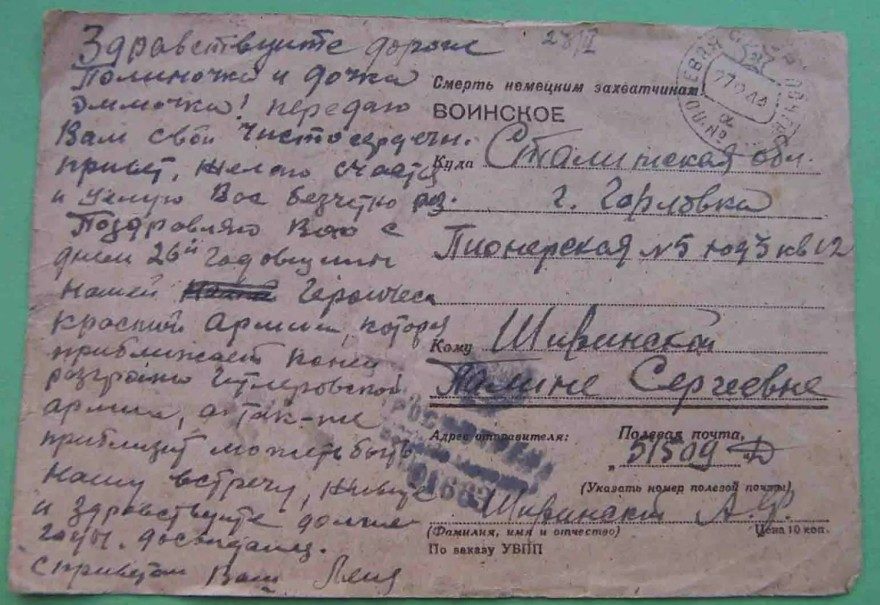 Здравствуйте дорогие
Полиночка и дочка
Эммочка! передаю
Вам свой чистосердечн.
привет, желаю счастья
и целую Вас безчетно раз.
Поздравляю Вас с
днем 26й годовщины
нашей Героическ
красной армии, которая
приближает конец
разгрома Гитлеровской
армии, а так-же
приблизит может быть
нашу встречу, живите
и здравствуйте долгие
годы. досвиданья.
с приветом Ваш Леня
23/II
Смерть немецким захватчикам!
ВОИНСКОЕ
Куда Сталинская обл.
г. Горловка
Пионерская №5 кв 12
Кому Шивинской
Полине Сергеевне
Адрес отправителя: Полевая почта
51509 Ф
(Указать номер полевой почты)
Шивинский А.Ф.
(Фамилия, имя и отчество) Цена 10 коп.
По заказу УВПП
ПОЛЕВАЯ
01683